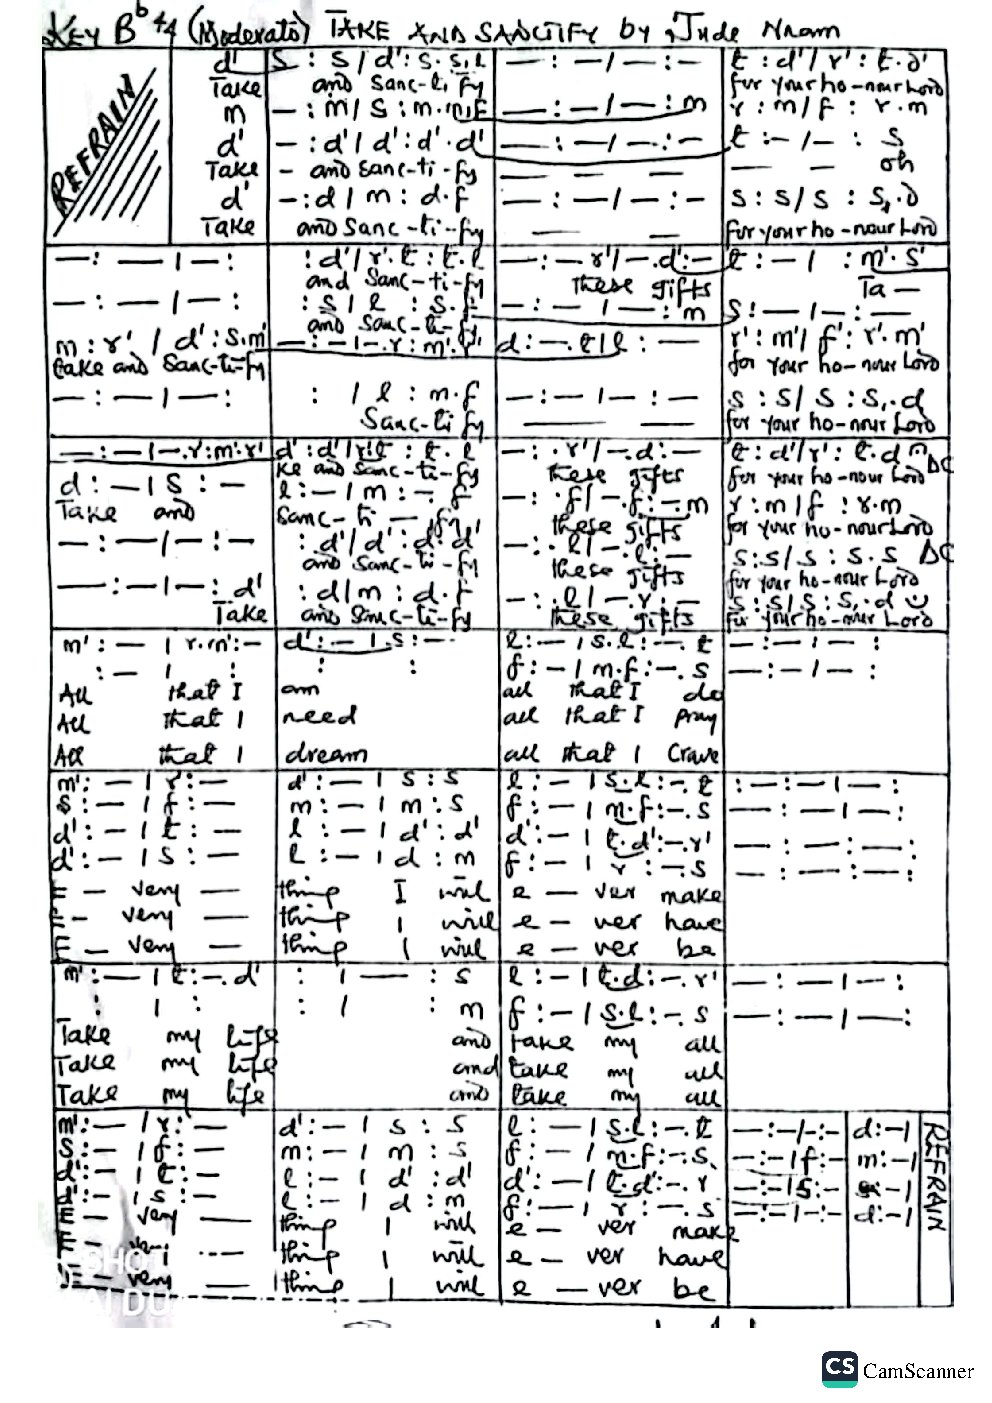 KEY Bb 4/4 (Moderato) TAKE AND SANCTIFY by Jude Nnam
REFRAIN
d' | s : s / d' : s . s, l | — : — / — : — | t : d' / r' : t . d'
Take and Sanc-ti-fy for your ho-nour Lord
m | — : m / s : m . m, f | — : — / — : m | r : m / f : r . m
d' | — : d' / d' : d' . d' | — : — / — . — : — | t : — / — : s
Take — and Sanc-ti-fy — — — — — oh
d' | — : d / m : d . f | — : — / — : — | s : s / s : s, . d
Take and Sanc-ti-fy — — for your ho-nour Lord
— : — / — : | : d' / r' . t : t . l | — : — r' / — . d' : — | t : — / : m' . s'
and Sanc-ti-fy these gifts Ta —
— : — / — : | : s / l : s . f | — : — / — : m | s : — / — : —
and Sanc-ti-fy
m : r' / d' : s . m' | — : — / — . r : m' . r' | d : — . t / l : — | r' : m' / f' : r' . m'
take and Sanc-ti-fy for your ho-nour Lord
— : — / — : | : / l : m . f | — : — / — : — | s : s / s : s, . d
Sanc-ti fy for your ho-nour Lord
— : — / — . r : m' . r' | d' : d' / r' . t : t . l | — : . r' / — . d : — | t : d' / r' : t . d DC
ke and Sanc-ti-fy these gifts for your ho-nour Lord
d : — / s : — | l : — / m : — . f | — : . f / — . f : — . m | r : m / f : r . m
Take and Sanc-ti — fy these gifts for your ho-nour Lord
— : — / — : — | : d' / d' : d' . d' | — : . l / — . l : — | s : s / s : s . s DC
and Sanc-ti-fy these gifts for your ho-nour Lord
— : — / — : d' | : d / m : d . f | — : . l / — . r : — | s : s / s : s, . d
Take and Sanc-ti-fy these gifts for your ho-nour Lord
m' : — / r . m' : — | d' : — / . s : — | l : — / s . l : — . t | — : — / — :
: — / : | : : | f : — / m . f : — . s | — : — / — :
All that I am all that I do
All that I need all that I pray
All that I dream all that I Crave
m' : — / r' : — | d' : — / s : s | l : — / s . l : — . t | — : — / — :
s : — / f : — | m : — / m : s | f : — / m . f : — . s | — : — / — :
d' : — / t : — | l : — / d' : d' | d' : — / t . d' : — . r' | — : — / — :
d' : — / s : — | l : — / d : m | f : — / r : — . s | — : — / — :
E — very — thing I will e — ver make
E — very — thing I will e — ver have
E — very — thing I will e — ver be
m' : — / t : — . d' | : / — : s | l : — / t . d : — . r' | — : — / — :
: / : | : / : m | f : — / s . l : — . s | — : — / — :
Take my life and take my all
Take my life and take my all
Take my life and take my all
m' : — / r' : — | d' : — / s : s | l : — / s . l : — . t | — : — / — : — | d : — /
s : — / f : — | m : — / m : s | f : — / m . f : — . s | — : — / f : — | m : — /
d' : — / t : — | l : — / d' : d' | d' : — / t . d : — . r | — : — / s : — | : — /
d' : — / s : — | l : — / d : m | f : — / r : — . s | — : — / — : — | d : — /
REFRAIN
E — very — thing I will e — ver make
thing I will e — ver have
very — thing I will e — ver be
CS CamScanner